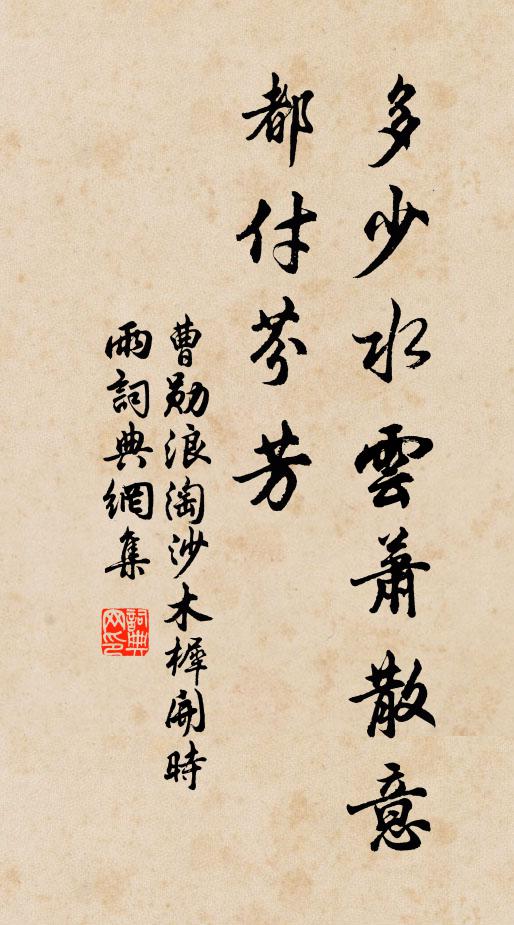 多少水雲蕭散意
都付芬芳
曹勛浪淘沙木樨開時
雨詞典網集
詞典網印